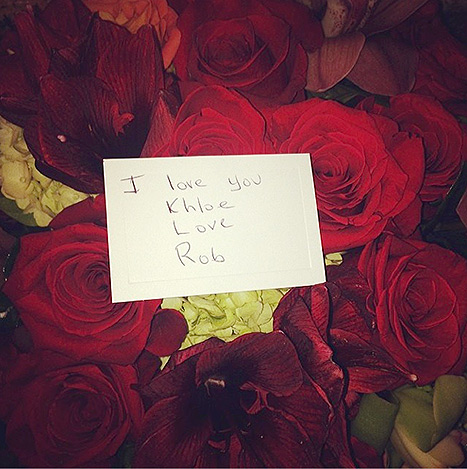 I love you
Khloe
Love
Rob